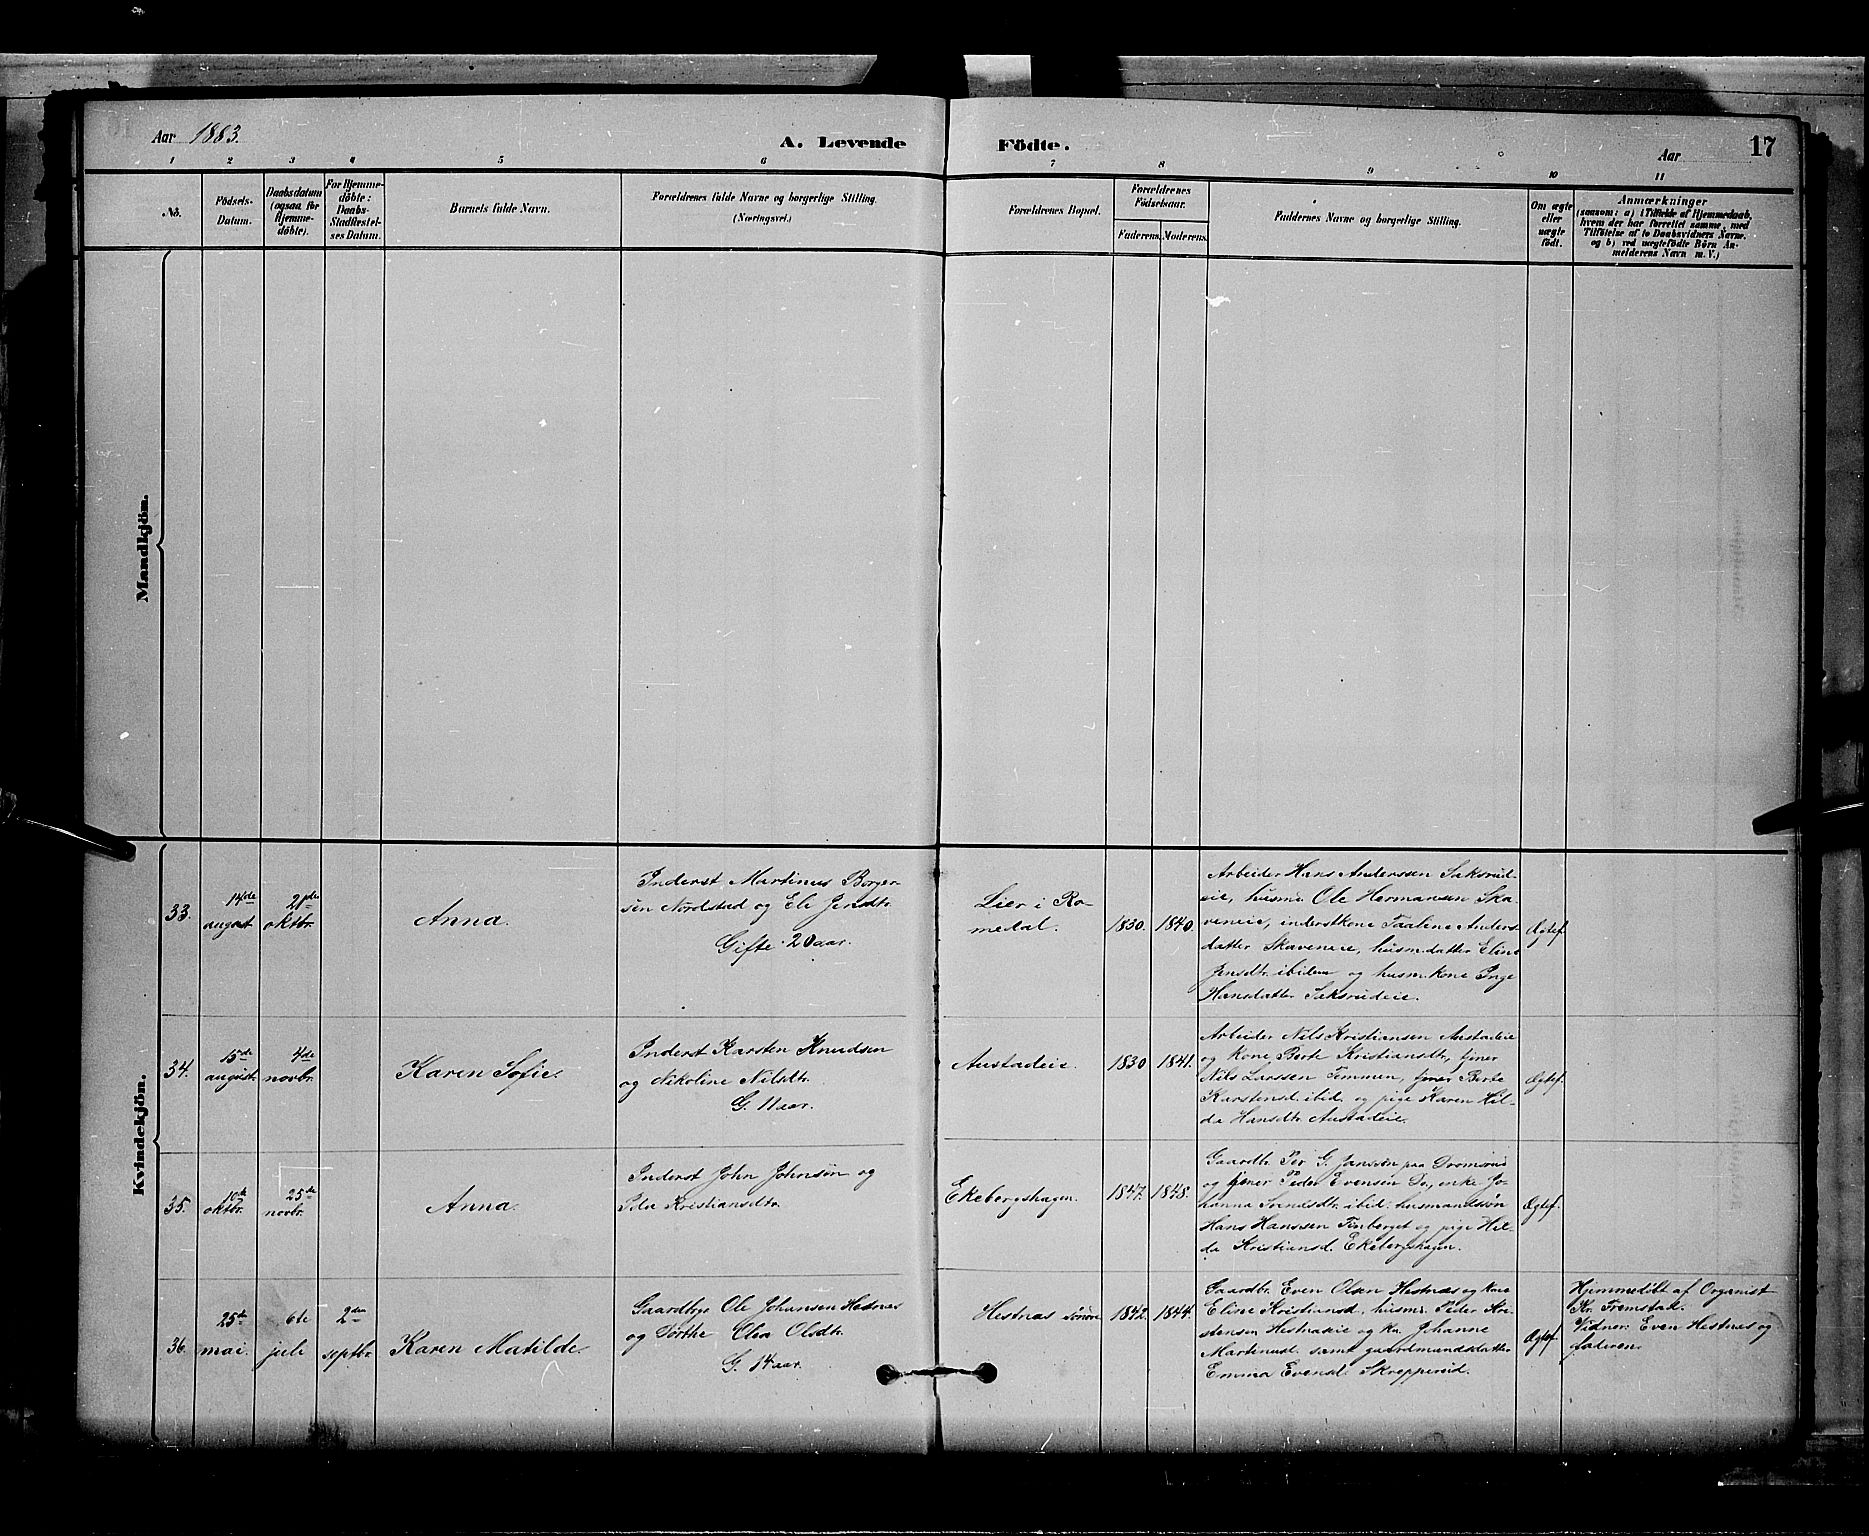 Aar 1883.
A. Levende Födte.
Aar
17
1 2 3 4 5 6 7 8 9 10 11
No.
Födsels-
Datum.
Daabsdatum
(ogsaa for
Hjemme-
döbte).
For Hjemme-
döbte:
Daabs-
Stadfæstel-
ses Datum.
Barnets fulde Navn.
Forældrenes fulde Navne og borgerlige Stilling.
(Næringsvei.)
Forældrenes Bopæl.
Forældrenes
Födselsaar.
Faderens.
Moderens.
Faddernes Navne og borgerlige Stilling.
Om ægte
eller
uægte
födt.
Anmærkninger
(saasom: a) i Tilfælde af Hjemmedaab,
hvem der har forrettet samme, med
Tilföielse af to Daabsvidners Navne,
og b) ved uægtefödte Börn An-
melderens Navn m. V.)
Mandkjön.
Kvindekjön.
33.
14de
august
21de
oktbr.
Anna.
Inderst Martinus Borger-
sen Nordstad og Eli Jensdtr.
Gifte 20 aar.
Lier i Ro-
medal.
1830.
1840.
Arbeider Hans Anderssen Saksrud-
eie, husm. Ole Hermansen Ska-
veneie, inderstkone Taaline Anders-
datter Skaveneie, husm.datter Eline
Jensdtr. ibidem og husm.kone Inge
Hansdatter Saksrudeie.
Ægtef.
34.
15de
august.
4de
novbr.
Karen Sofie.
Inderst Karsten Knudsen
og Nikoline Nilsdtr.
G. 11 aar.
Austadeie.
1830
1841.
Arbeider Nils Kristiansen Austadeie
og kone Berte Kristiansdtr, tjener
Nils Larssen Temmen, tjener Berte
Karstensd. ibid. og pige Karen Hil-
da Hansdtr. Austadeie.
Ægtef.
35.
10de
oktbr.
25de
novbr.
Anna.
Inderst John Johnsön og
Ida Kristiansdtr.
Ekebergshagen.
1847.
1848.
Gaardbr. Per G. Jansen paa Dromsrud
og tjener Peder Evensen Do, enke Jo-
hanna ibid. husmandssøn
Hans Hanssen Finberget og pige Hil-
da Kristiansd. Ekebergshagen.
Ægtef.
36.
25de
mai.
6te
juli
2den
septbr.
Karen Matilde.
Gaardbr. Ole Johansen Hestnæs
og Dorthe Olea Olsdtr.
G. 14 aar.
Hestnæs søndre
1842.
1844.
Gaardbr. Even Olsen Hestnæs og kone
Eline Kristiansd, husm. Peter Kri-
stensen Hestnæseie og kn. Johanne
Martinusd. samt gaardmandsdatter
Emma Evensd. Skrepperud.
Ægtef.
Hjemmedøbt af Organist
Kr. Fremstad.
Vidner: Even Hestnæs og
faderen.